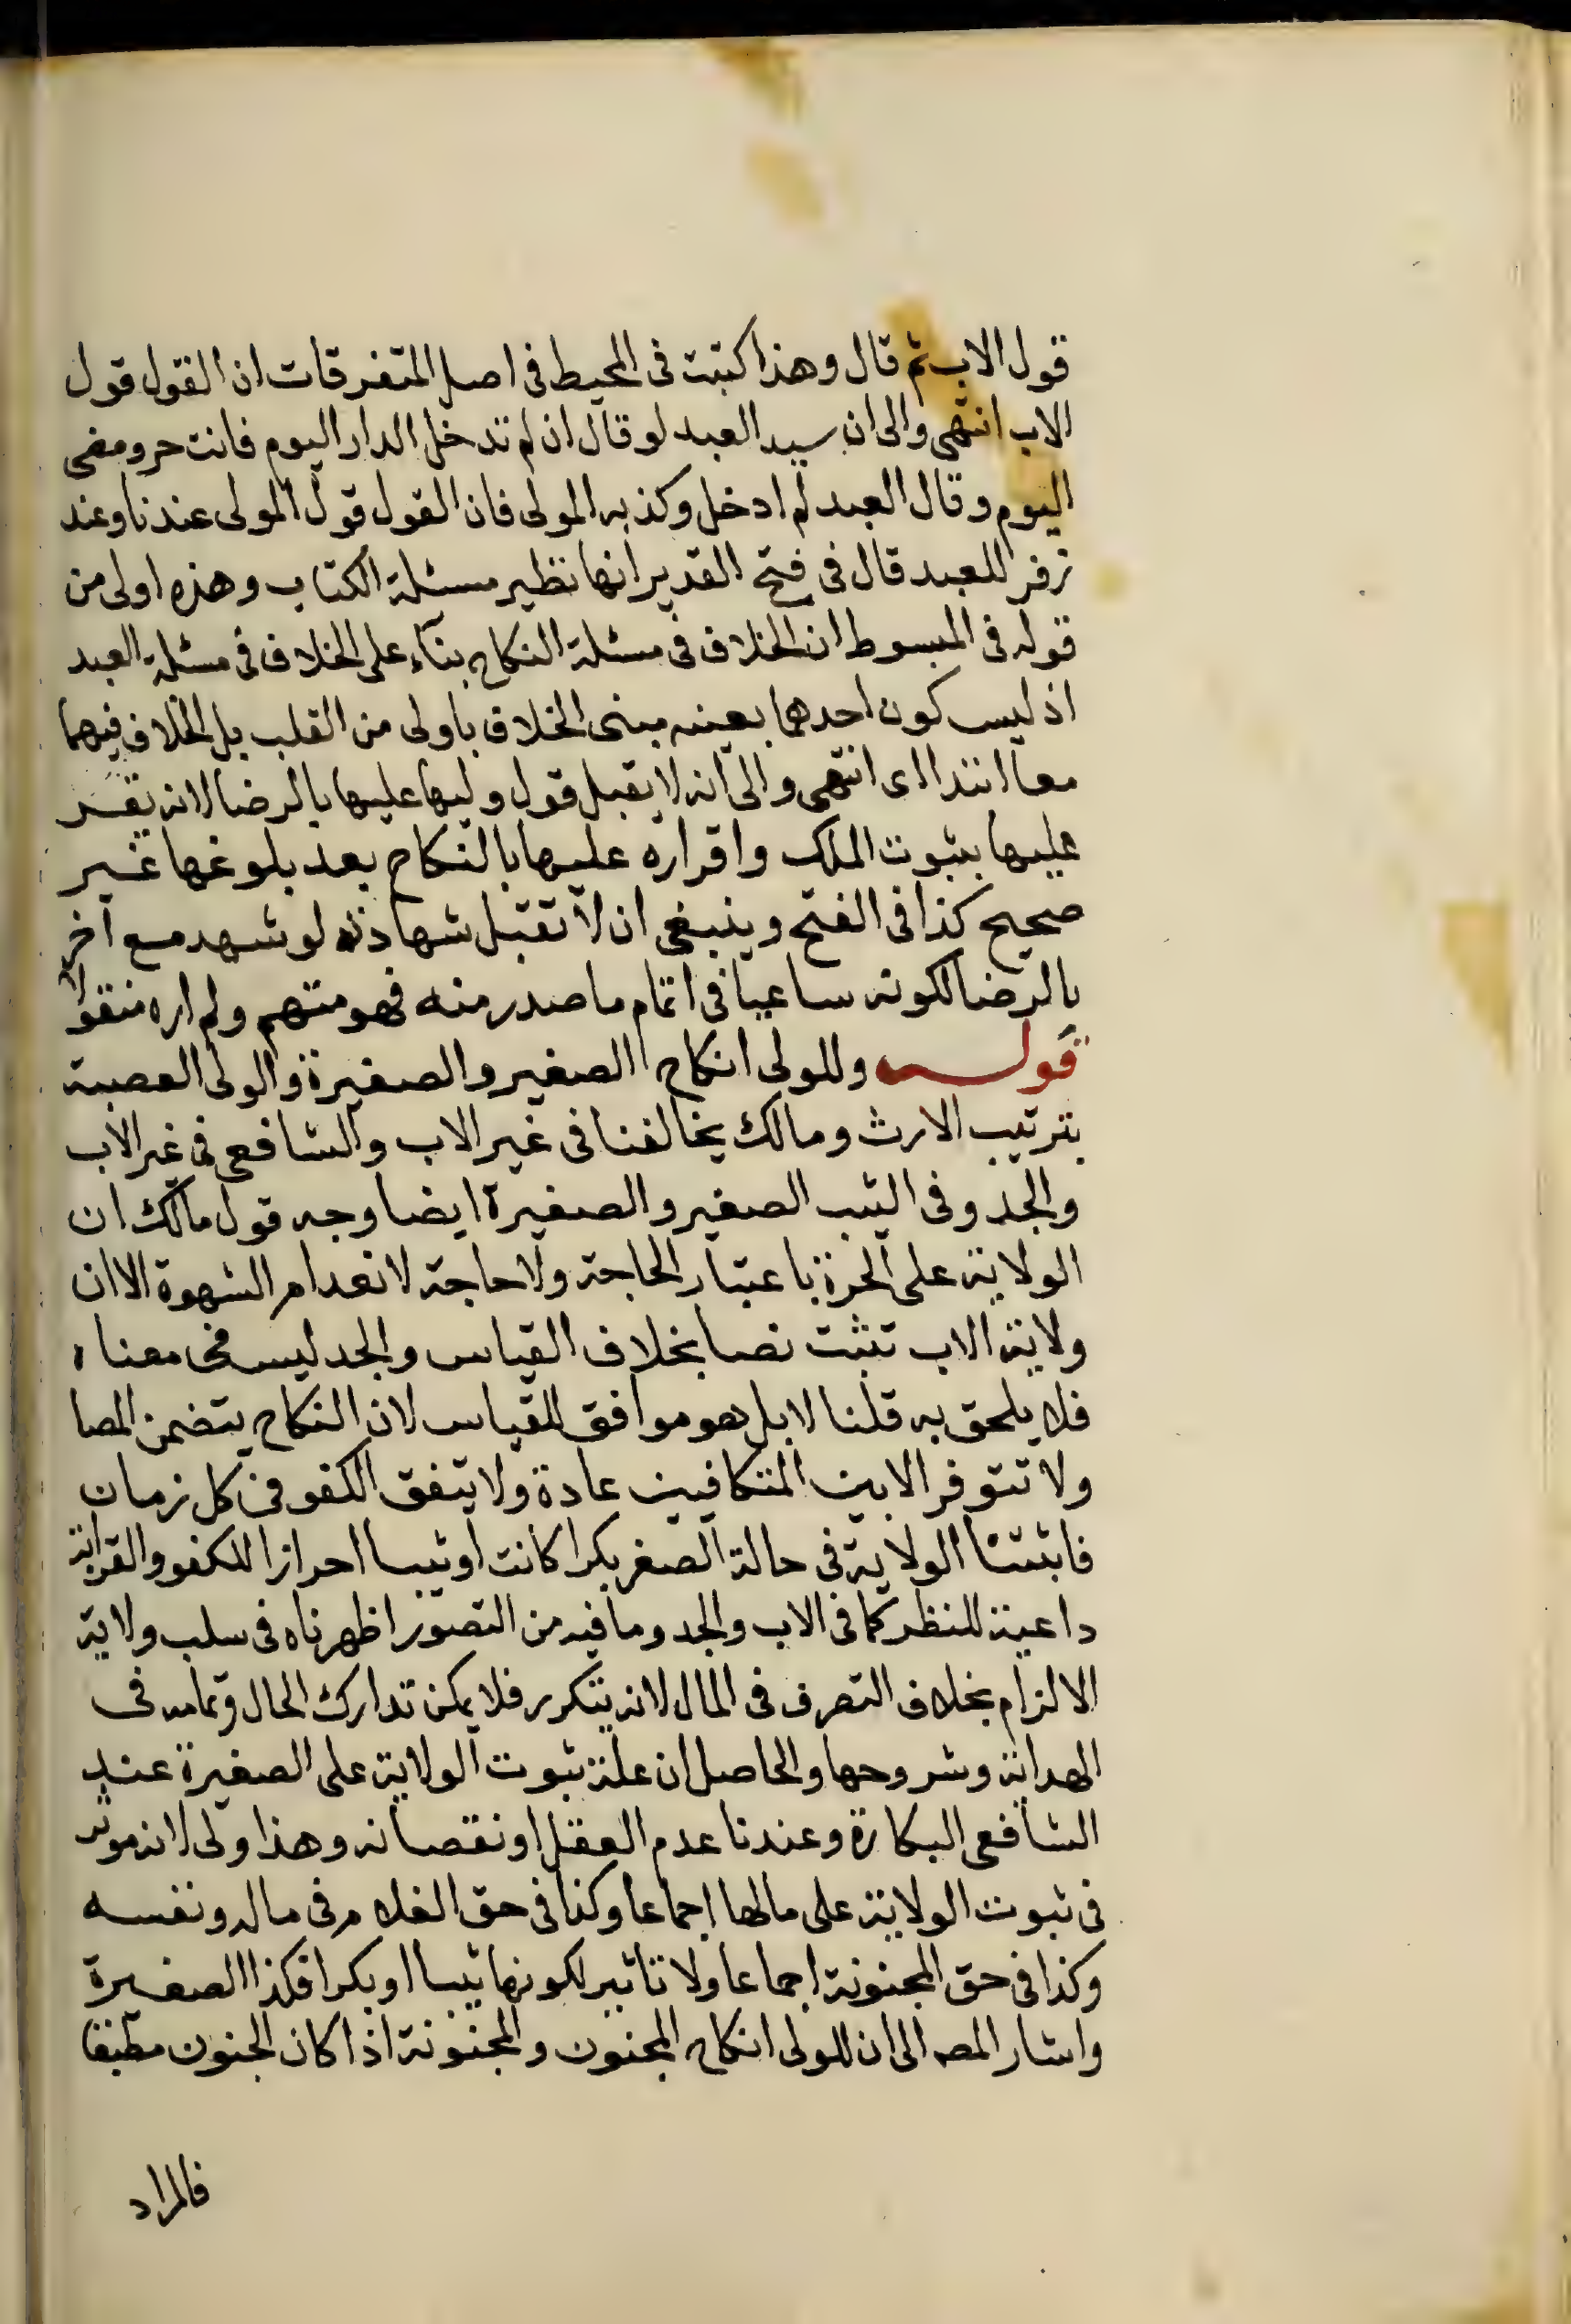 قول الاب ثم قال وهذا كتبت فى المحيط فى اصل المتفرقات ان القول قول
الاب انتهى والى ان سيد العبد لو قال ان لم تدخل الدار اليوم فانت حر ومضى
اليوم وقال العبد لم ادخل وكذبه المولى فان القول قول المولى عندنا وعند
زفر للعبد قال فى فتح القدير انها نظير مسئلة الكتاب وهذه اولى من
قوله فى المبسوط ان الخلاف فى مسئلة النكاح بناء على الخلاف فى مسئلة العبد
اذ ليس كون احدهما بعينه مبنى الخلاف باولى من القلب بل الخلاف فيهما
معا ابتدااى انتهى والى انه لا يقبل قول وليها عليها بالرضا لانه يقر
عليها بثبوت الملك واقراره عليها بالنكاح بعد بلوغها غير
صحيح كذا فى الفتح وينبغى ان لا تقبل شهادته لو شهد مع آخر
بالرضا لكونه ساعيا فى اتمام ما صدر منه فهو متهم ولم اره منقولا
قوله وللولى انكاح الصغير والصغيرة والولى العصبة
بترتيب الارث ومالك يخالفنا فى غير الاب والشافعى فى غير الاب
والجد وفى الثيب الصغير والصغيرة ايضا وجه قول مالك ان
الولاية على الحرة باعتبار الحاجة ولا حاجة لانعدام الشهوة الا ان
ولاية الاب تثبت نصا بخلاف القياس والجد ليس فى معناه
فلا يلحق به قلنا لا بل هو موافق للقياس لان النكاح يتضمن المصا
ولا تتوفر الا بين المتكافيين عادة ولا يتفق الكفو فى كل زمان
فاثبتنا الولاية فى حالة الصغر بكرا كانت او ثيبا احرازا للكفو والقرابة
داعية للنظر كما فى الاب والجد وما فيه من القصور اظهرناه فى سلب ولاية
الالزام بخلاف التصرف فى المال لانه يتكرر فلا يمكن تدارك الحال وتمامه فى
الهداية وشروحها والحاصل ان علة ثبوت الولاية على الصغيرة عند
الشافعى البكارة وعندنا عدم العقل او نقصانه وهذا اولى لانه موثر
فى ثبوت الولاية على مالها اجماعا وكذا فى حق الغلام فى ماله ونفسه
وكذا فى حق المجنونة اجماعا ولا تاثير لكونها ثيبا او بكرا فكذا الصغيرة
واشار المصـ الى ان للولى انكاح المجنون والمجنونة اذا كان الجنون مطبقا
فالمراد